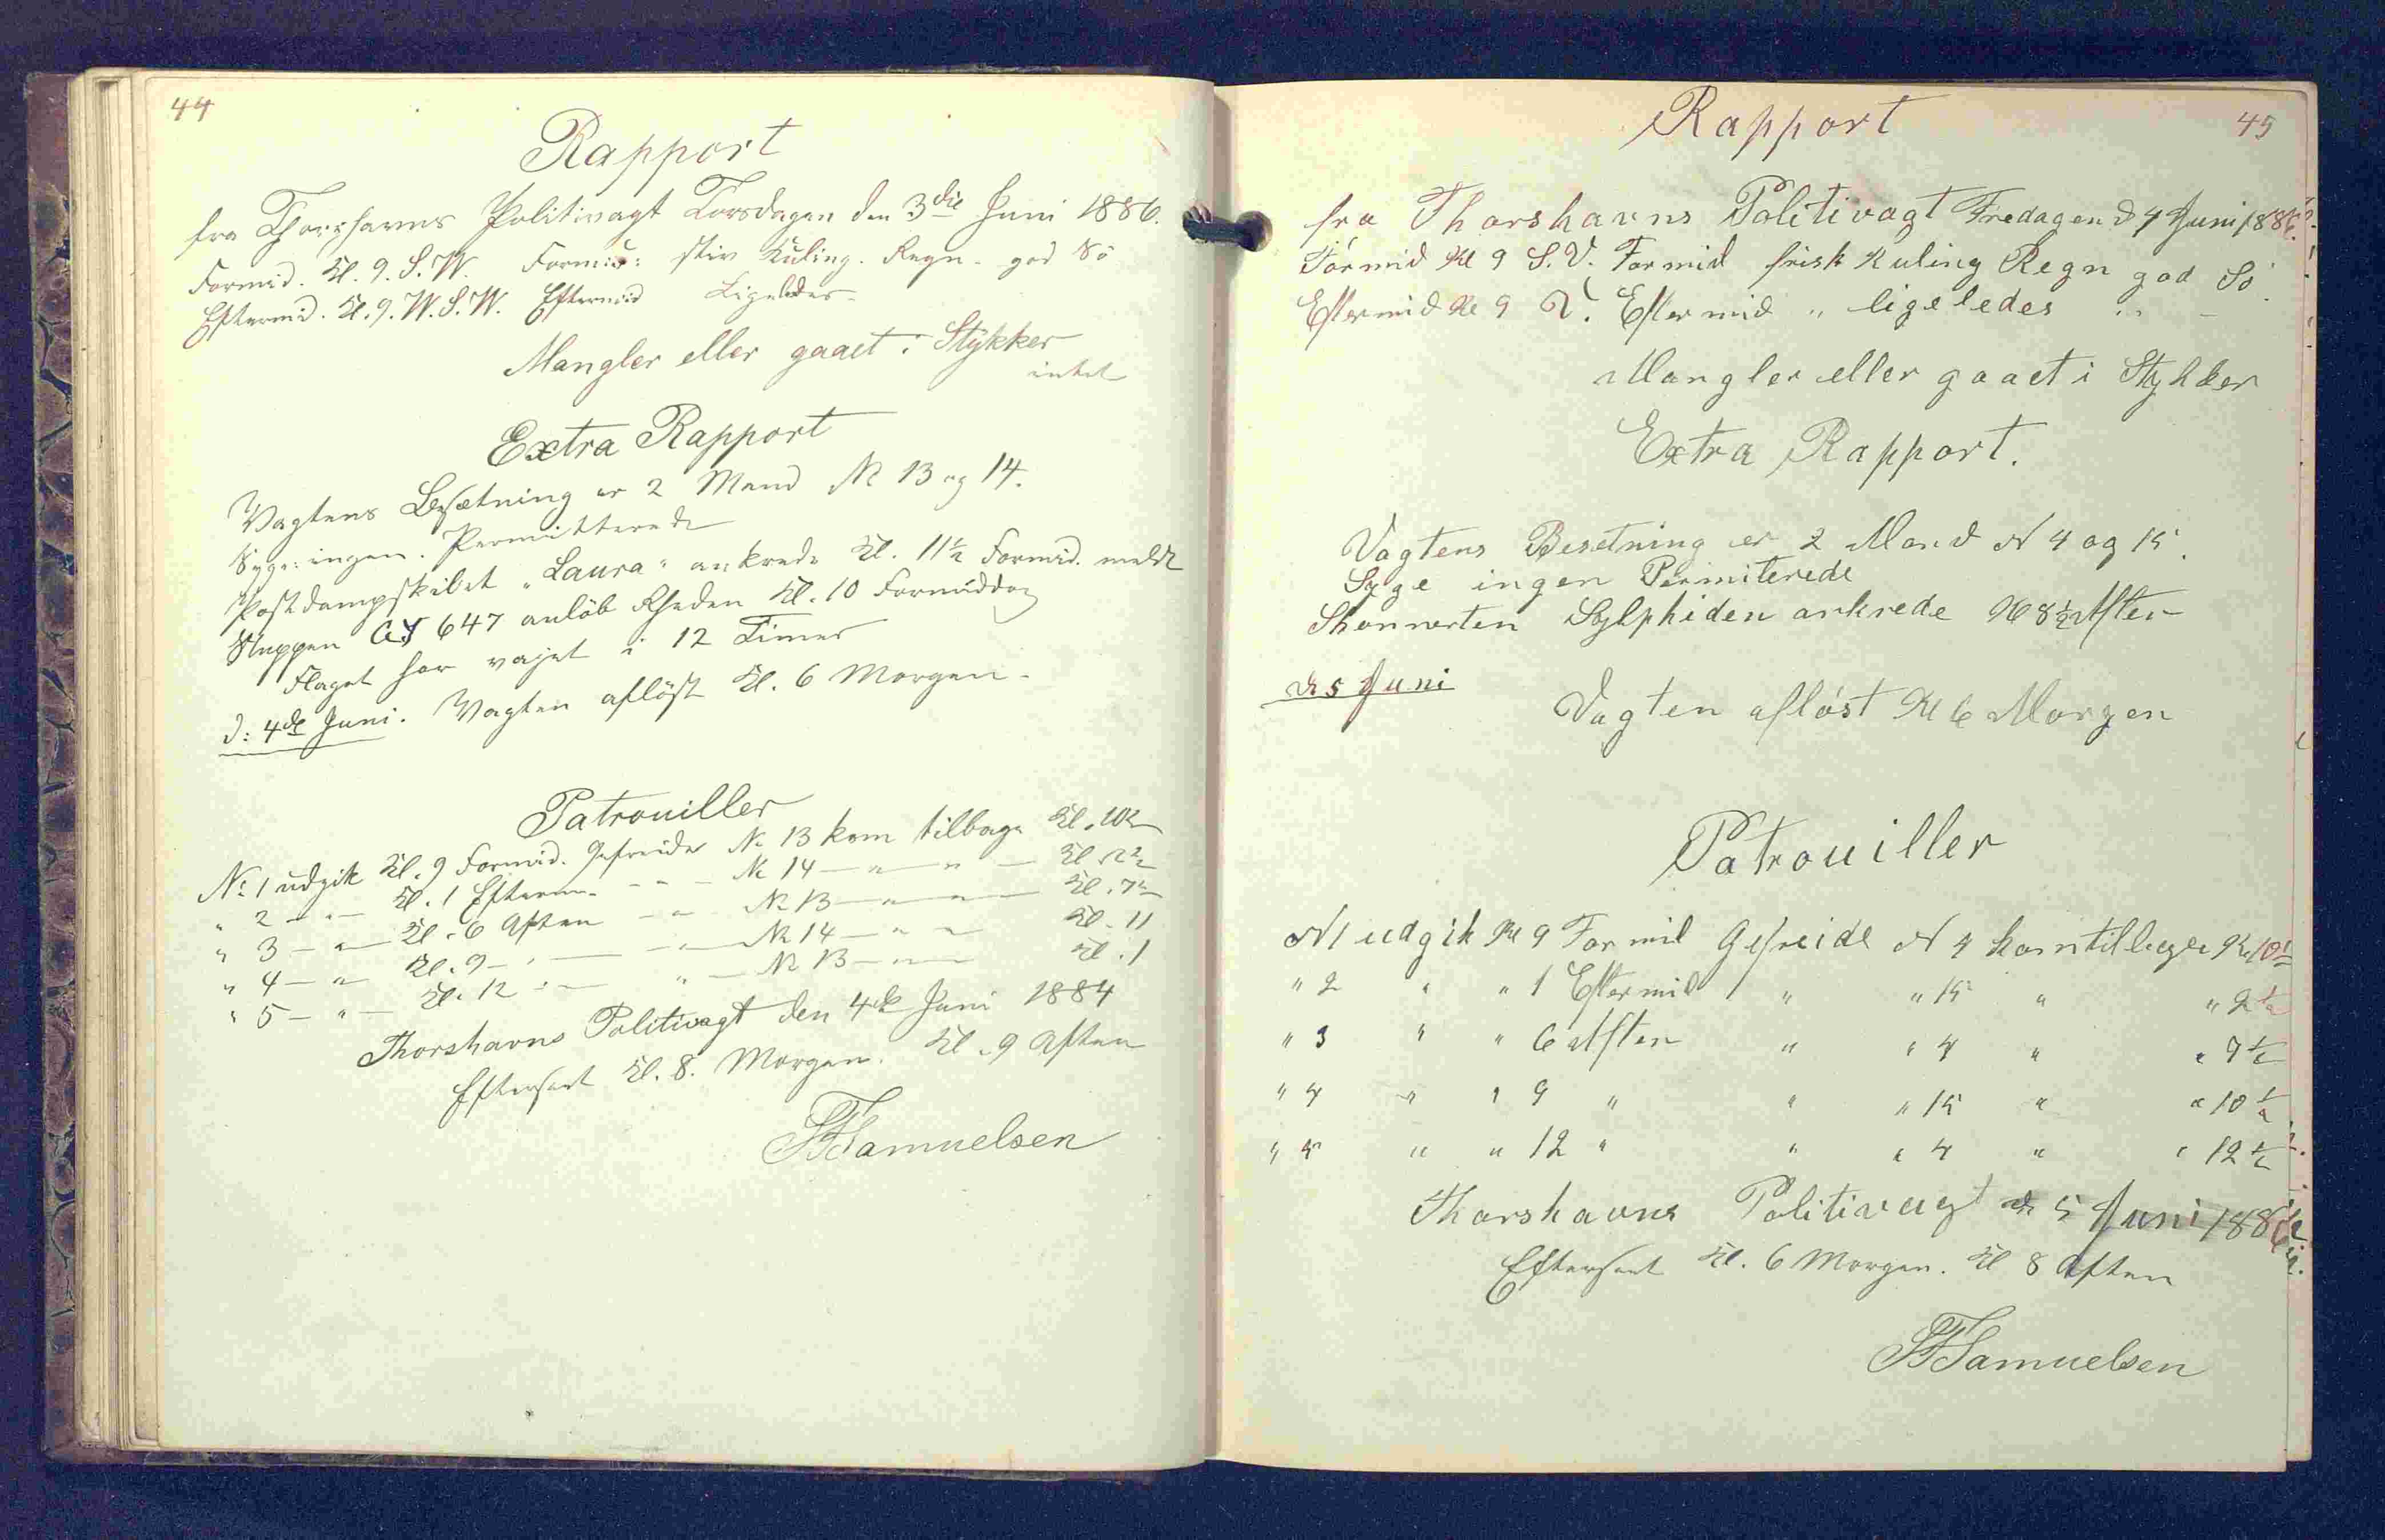 44
Rapport
fra Thorshavns Politivagt Torsdagen den 3die Juni 1886.
Formid. Kl. 9. S.W. Formid: stiv Kuling. Regn. god Sö
Eftermid. Kl. 9. W.S.W. Eftermid Ligeledes
Mangler eller gaaet i Stykker
intet
Extra Rapport
Vagtens Besætning er 2 Mand № 13 og 14.
Syge: ingen. Permitterede
Postdampskibet "Laura" ankrede Kl. 11½ Formid.
Sluppen GY 647 anlöb Rheden Kl. 10 Formiddag
Flaget har vajet i 12 Timer
d: 4de Juni. Vagten aflöst Kl. 6 Morgen
Patrouiller
№ 1 udgik Kl. 9 Formid. Gefreider № 13 kom tilbage Kl. 10½
" 2 — " — Kl. 1 Efterm. — " — № 14 — " — " — Kl. 2½
" 3 — " — Kl. 6 Aften — " — № 13 — " — " — Kl. 7½
" 4 — " — Kl. 9 — " — — " — № 14 — " — " — Kl. 11
" 5 — " — Kl. 12 — " — — " — № 13 — " — " — Kl. 1
Thorshavns Politivagt den 4de Juni 1884
Efterseet Kl. 8. Morgen. Kl. 9 Aften
Samuelsen
45
Rapport
fra Thorshavns Politivagt Fredagen d 4 Juni 1886.
Formid Kl 9 S.V. Formid frisk Kuling Regn god Sö
Eftermid Kl 9 V. Eftermid " ligeledes " –
Mangler eller gaaet i Stykker
Extra Rapport.
Vagtens Besetning er 2 Mand N 4 og 15.
Syge ingen Permiterede
Skonnerten Sylphiden ankrede Kl 8½ Aften
d 5 Juni
Vagten aflöst Kl 6 Morgen
Patrouiller
N 1 udgik Kl 9 Formid Gefreide N 4 kom tilbage Kl 10½
" 2 " " 1 Eftermid " " 15 " " 2½
" 3 " " 6 Aften " " 4 " " 7½
" 4 " " 9 " " " 15 " " 10½
" 5 " " 12 " " " 4 " " 12½
Thorshavns Politivagt d 5 Juni 1886
Efterseet Kl. 6 Morgen. Kl 8 Aften
Samuelsen